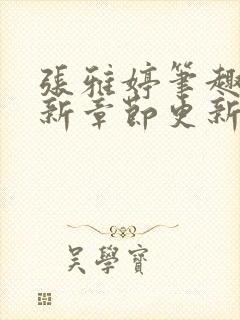 張雅婷筆趣
新章節更新
吳學寶